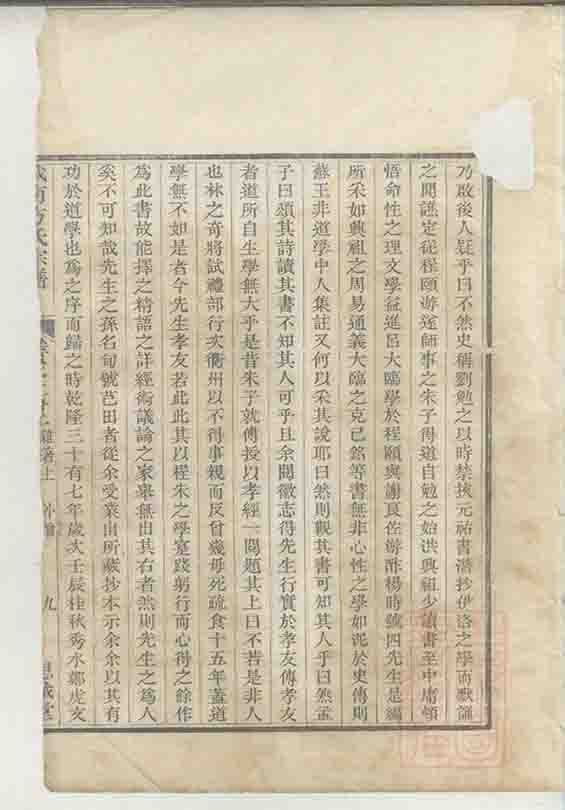 乃啟後人疑乎曰不然史稱劉勉之以時禁挾元祐書潛抄伊洛之學而默誦
之聞譙定從程頤游遂師事之朱子得道自勉之始洪興祖少讀書至中庸頓
悟命性之理文學益進呂大臨學於程頤與謝良佐游酢楊時號四先生是編
所采如興祖之周易通義大臨之克己銘等書無非心性之學如泥於史傳則
蘇王非道學中人集註又何以采其說耶曰然則觀其書可知其人乎曰然孟
子曰頌其詩讀其書不知其人可乎且余閱徽志得先生行實於孝友傳孝友
者道所自生學無大乎是昔朱子就傅授以孝經一閱題其上曰不若是非人
也林之奇將試禮部行次衢州以不得事親而反曾幾毋死疏食十五年蓋道
學無不如是者今先生孝友若此此其以程朱之學實踐躬行而心得之餘作
為此書故能擇之精語之詳經術議論之家舉無出其右者然則先生之為人
矣不可知哉先生之孫名旬號芑田者從余受業出所藏抄本示余余以其有
功於道學也為之序而歸之時乾隆三十有七年歲次壬辰桂秋秀水鄭虎文
方氏宗譜
雜著上
九